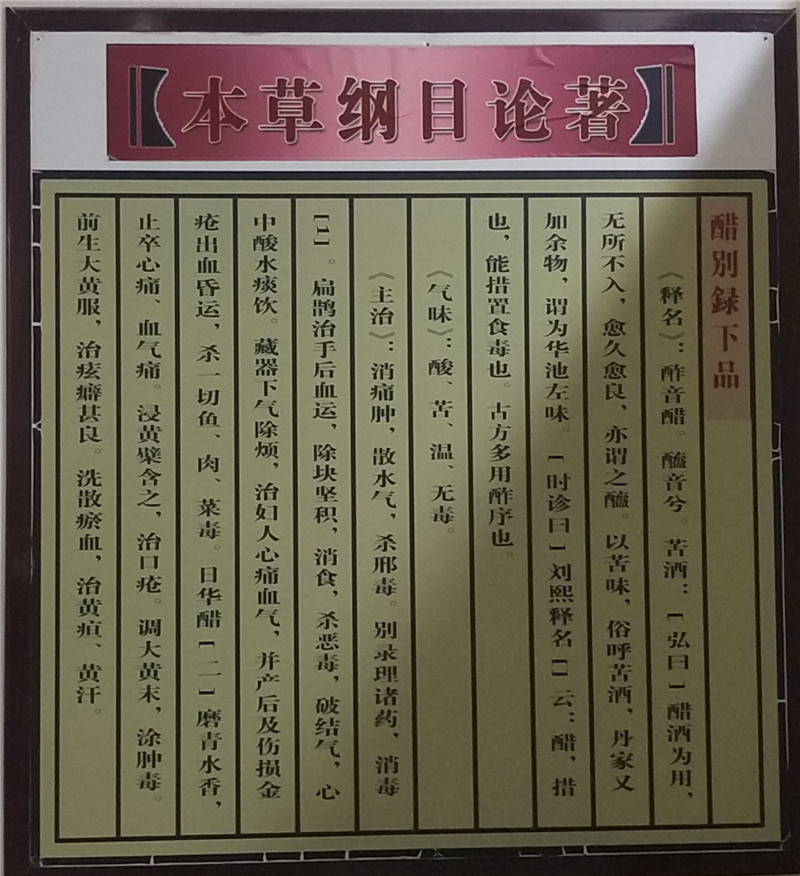 【本草纲目论著】
醋别録下品
《释名》：酢音醋。醯音兮。苦酒：【弘曰】醋酒为用，
无所不入，愈久愈良，亦谓之醯。以苦味，俗呼苦酒，丹家又
加余物，谓为华池左味。【时诊曰】刘熙释名【】云：醋，措
也，能措置食毒也。古方多用酢序也。
《气味》：酸、苦、温、无毒。
《主治》：消痛肿，散水气，杀邢毒。别录理诸药，消毒
【二】。扁鹊治手后血运，除块坚积，消食，杀恶毒，破结气，心
中酸水痰饮。藏器下气除烦，治妇人心痛血气，并产后及伤损金
疮出血昏运，杀一切鱼、肉、菜毒。日华醋【二】磨青水香，
止卒心痛、血气痛。浸黄檗含之，治口疮。调大黄末，涂肿毒。
前生大黄服，治痃癖甚良。洗散瘀血，治黄疸、黄汗。